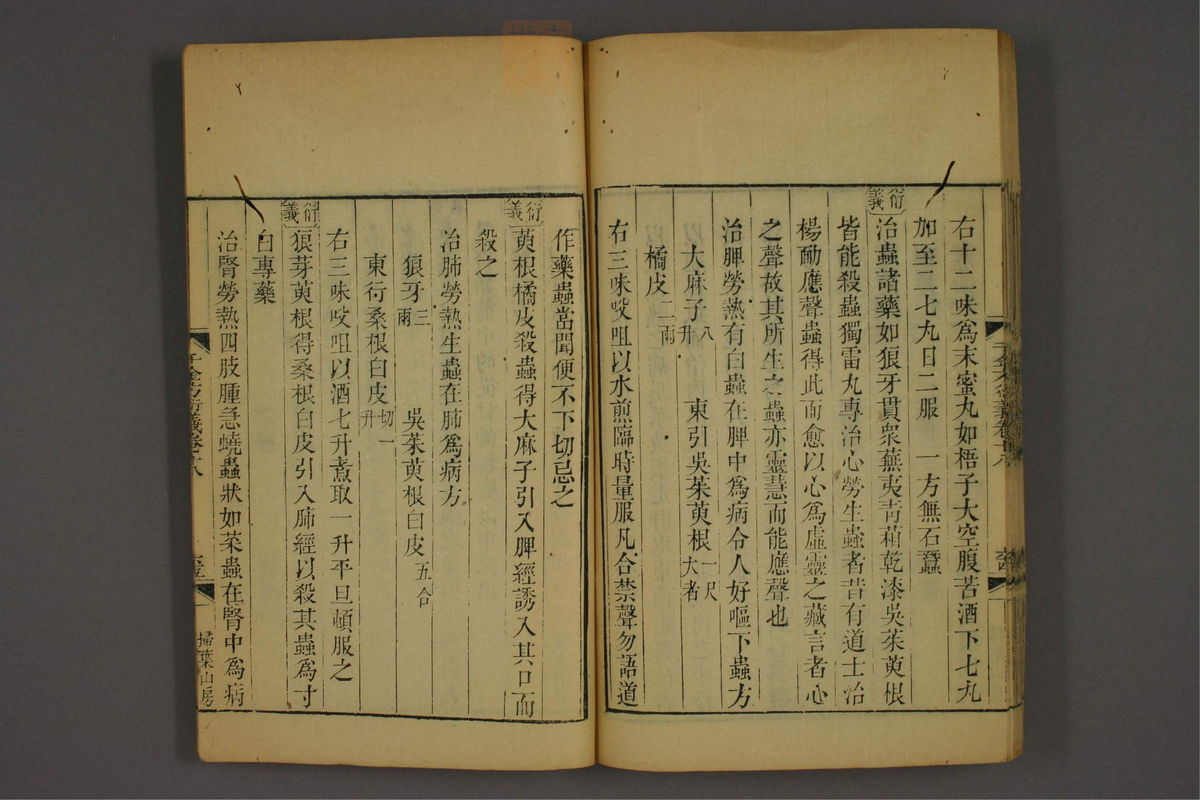 右十二味為末蜜丸如梧子大空腹苦酒下七丸
加至二七丸日二服　一方無石蠶
衍義
治蟲諸藥如狼牙貫衆蕪夷青葙乾漆吳茱萸根
皆能殺蟲獨雷丸專治心勞生蟲者昔有道士治
楊勔應聲蟲得此而愈以心為虛靈之藏言者心
之聲故其所生之蟲亦靈慧而能應聲也
治脾勞熱有白蟲在脾中為病令人好嘔下蟲方
大麻子八升　東引吳茱萸根一尺大者
橘皮二兩
右三味㕮咀以水煎臨時量服凡合禁聲勿語道
作藥蟲當聞便不下切忌之
衍義
萸根橘皮殺蟲得大麻子引入脾經誘入其口而
殺之
治肺勞熱生蟲在肺為病方
狼牙三兩　吳茱萸根白皮五合
東行桑根白皮切一升
右三味㕮咀以酒七升煮取一升平旦頓服之
衍義
狼芽萸根得桑根白皮引入肺經以殺其蟲為寸
白專藥
治腎勞熱四肢腫急蟯蟲狀如菜蟲在腎中為病
千金方衍義卷十八
掃葉山房